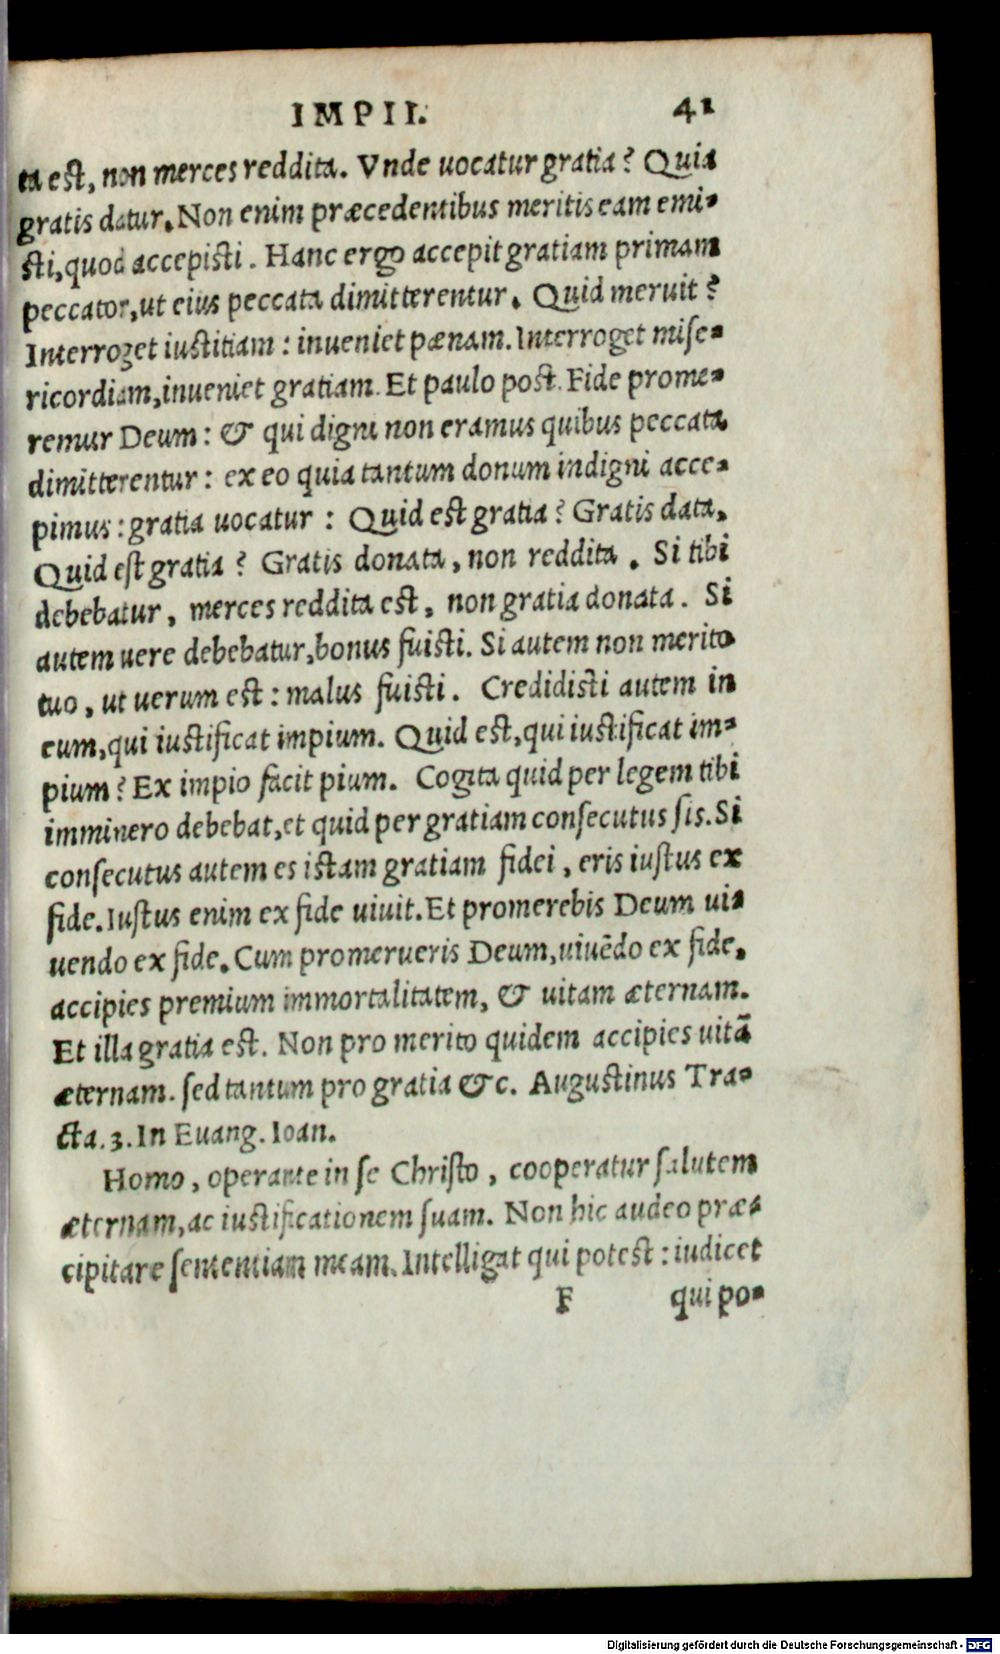 IMPII. 41
ta est, non merces reddita. Vnde uocatur gratia? Quia
gratis datur. Non enim præcedentibus meritis eam emi-
sti, quod accepisti. Hanc ergo accepit gratiam primam
peccator, ut eius peccata dimitterentur. Quid meruit?
Interroget iustitiam: inueniet pœnam. Interroget mise-
ricordiam, inueniet gratiam. Et paulo post. Fide prome-
remur Deum: & qui digni non eramus quibus peccata
dimitterentur: ex eo quia tantum donum indigni acce-
pimus: gratia uocatur: Quid est gratia? Gratis data.
Quid est gratia? Gratis donata, non reddita. Si tibi
debebatur, merces reddita est, non gratia donata. Si
autem uere debebatur, bonus fuisti. Si autem non merito
tuo, ut uerum est: malus fuisti. Credidisti autem in
eum, qui iustificat impium. Quid est, qui iustificat im-
pium? Ex impio facit pium. Cogita quid per legem tibi
imminero debebat, et quid per gratiam consecutus sis. Si
consecutus autem es istam gratiam fidei, eris iustus ex
fide. Iustus enim ex fide uiuit. Et promerebis Deum ui-
uendo ex fide. Cum promerueris Deum, uiuēdo ex fide.
accipies premium immortalitatem, & uitam æternam.
Et illa gratia est. Non pro merito quidem accipies uitā
æternam. sed tantum pro gratia &c. Augustinus Tra-
cta. 3. In Euang. Ioan.
Homo, operante in se Christo, cooperatur salutem
æternam, ac iustificationem suam. Non hic audeo præ-
cipitare sententiam meam. Intelligat qui potest: iudicet
F qui po-
Digitalisierung gefördert durch die Deutsche Forschungsgemeinschaft - DFG